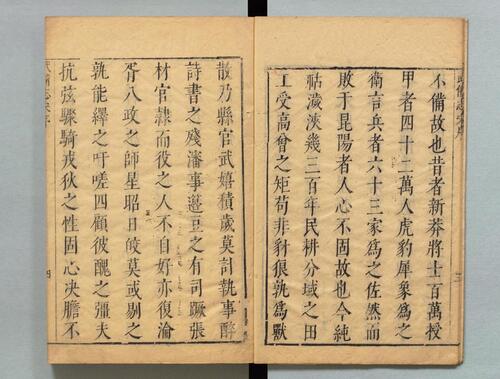 不備故也昔者新莽將士百萬授
甲者四十二萬人虎豹犀象爲之
衛言兵者六十三家爲之佐然而
敗于昆陽者人心不固故也今純
祜濊浹幾三百年民耕分域之田
工受高曾之矩苟非豺狼孰爲獸
散乃縣官武嬉積歲莫討執事醉
詩書之殘瀋事籩豆之有司蹶張
材官隷而彼之人不自好亦復淪
胥八政之師星昭日皎莫或剔之
孰能繹之吁嗟四顧彼醜之彊夫
抗弦驟騎戎狄之性固心决膽不
四